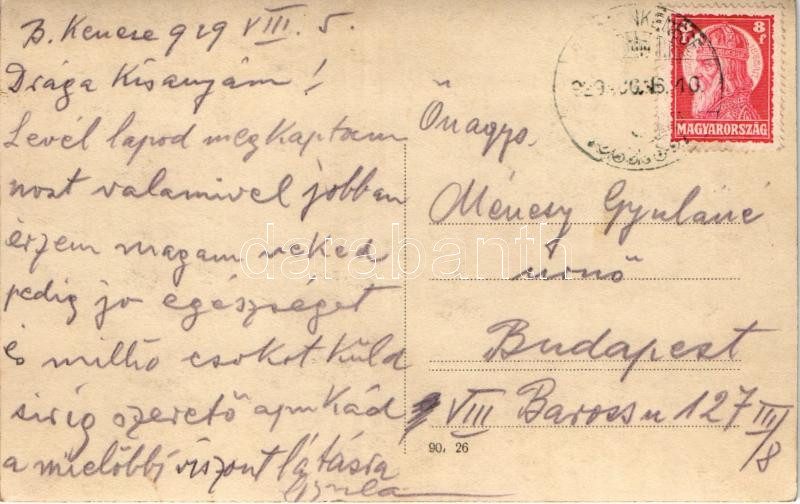 B. Kenese 929 VIII. 5.
Drága Kisanyám!
Levél lapod megkaptam
most valamivel jobban
érzem magam neked
pedig jo egészséget
és millió csokot küld
sirig szerető apukád
a mielőbbi viszont látásra
Gyula
Önagys.
Gyuláné
úrnő
Budapest
VIII Baross u 127 III/8
90, 26
8 f
MAGYARORSZÁG
darabanth